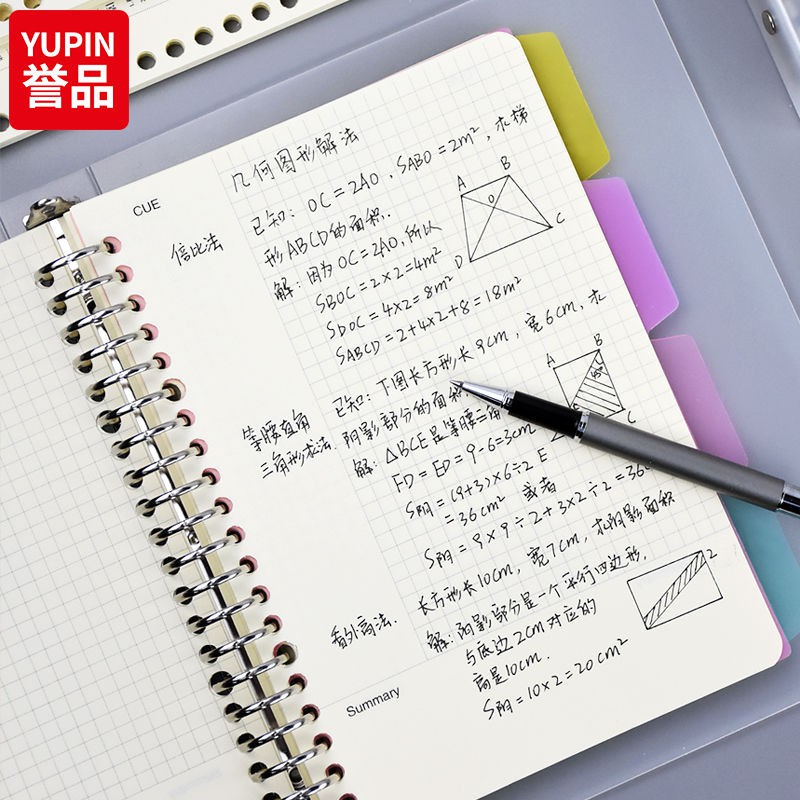 YUPIN
誉品
CUE
几何图形解法
倍比法
已知: OC=2AO, SABO=2m², 求梯
形ABCD的面积.
解: 因为OC=2AO, 所以
SBOC=2×2=4m²
SDOC=4×2=8m²
SABCD=2+4×2+8=18m²
A
B
O
C
D
等腰直角
三角形求法.
已知: 下图长方形长9cm, 宽6cm, 求
阴影部分的面积
解: △BCE是等腰三角
FD=ED=9-6=3cm
S阴=(9+3)×6÷2
=36cm² 或者
S阴=9×9÷2+3×2÷2=36
A
B
45°
C
E
看外高法.
长方形长10cm, 宽7cm, 求阴影面积
解: 阴影部分是一个平行四边形,
与底边2cm对应的
高是10cm.
S阴=10×2=20cm²
2
Summary